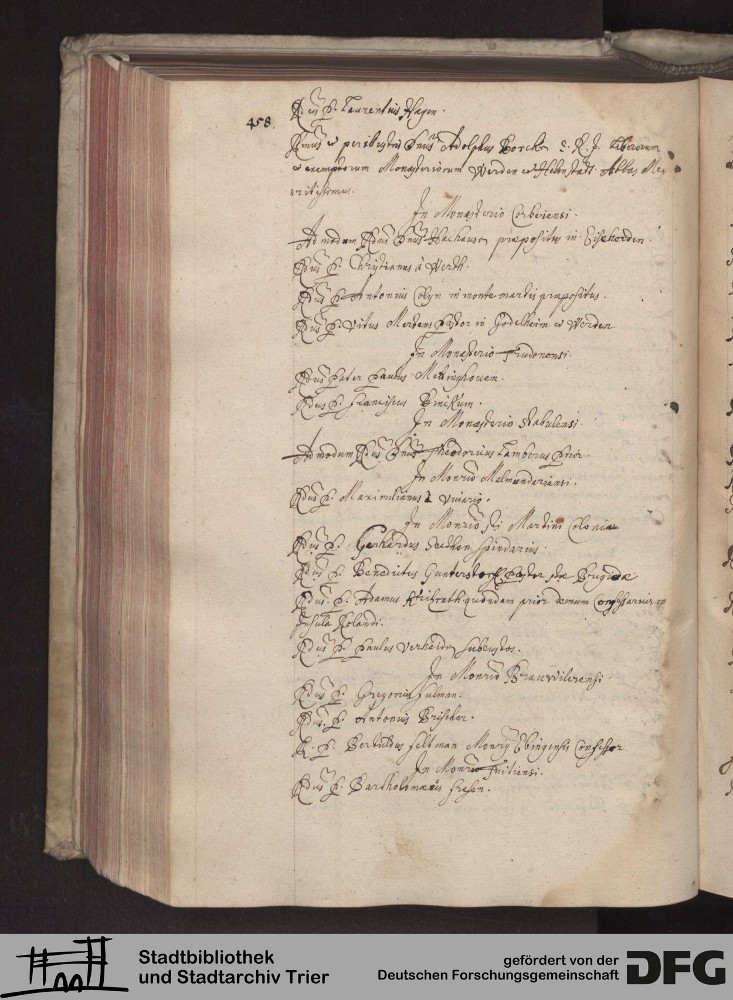 458.
Rdus P. Laurentius Hagen.
Rmus et perillustris Dnus Adolphus Borcken S. R. I. liberorum
et exemptorum Monasteriorum Werden et Helmstadt Abbas Me-
ritissimus.
In Monasterio Corbeiensi.
Admodum Rdus Dnus Hachausen præpositus in
Rdus P. Christianus à Werth.
Rdus P. Antonius in monte martis præpositus.
Rdus P. Vitus Mertens Pastor in Godelheim et Werden
In Monasterio Trudonensi.
Rdus Pater Paulus Mettinghoven.
Rdus P. Franciscus
In Monasterio Stabulensi.
Admodum Rdus Dnus Theodoricus Lamberus Prior
In Monrio Malmunderiensi.
Rdus P. Maximilianus à Vivario.
In Monrio Sti Martini Coloniæ
Rdus P. Gerhardus
Rdus P. Benedictus Pastor Stæ Brigidæ
Rdus P. Adamus quondam prior demum Confessarius in
Insula Rolandi.
Rdus P. Paulus Verheiden Subcustos.
In Monrio Brauwilerensi
Rdus P. Gregorius Fulman.
Rdus P. Antonius
R. P. Bertuldus Feltman Monrii Confessor
In Monrio
Rdus P. Bartholomæus Fresen.
Stadtbibliothek
und Stadtarchiv Trier
gefördert von der
Deutschen Forschungsgemeinschaft
DFG